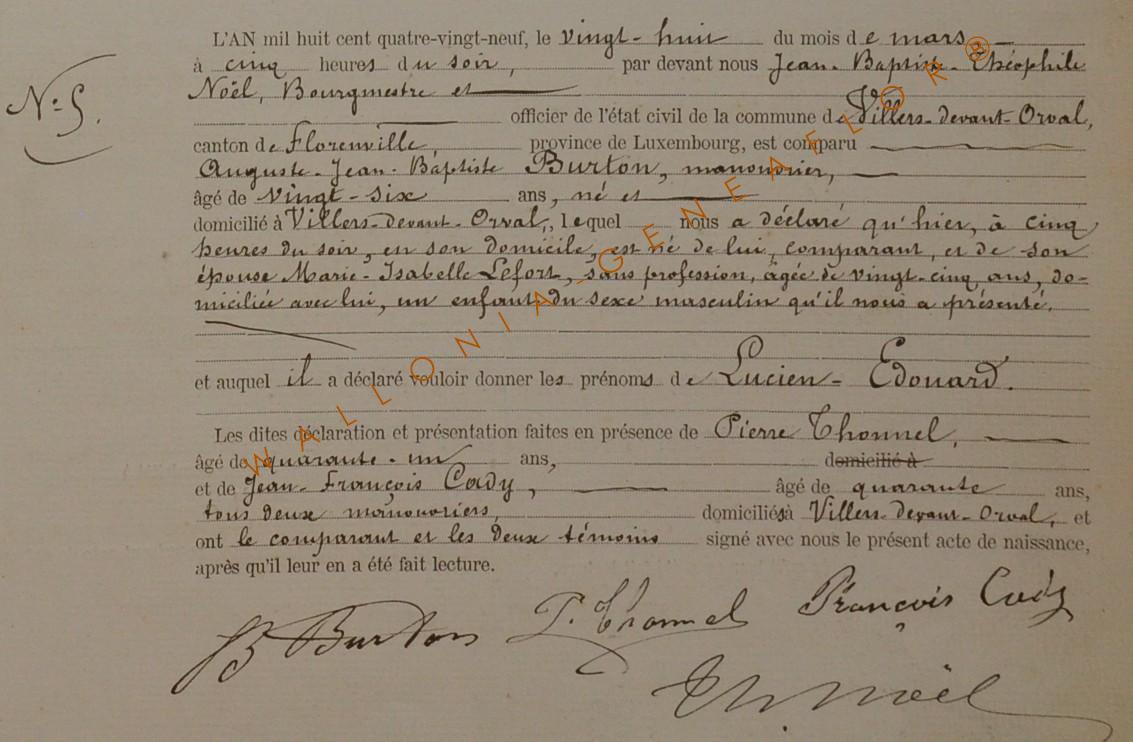 L'AN mil huit cent quatre-vingt-neuf, le vingt-huit du mois de mars
à cinq heures du soir, par devant nous Jean-Baptiste-Théophile
N° 5.
Noël, Bourgmestre et
officier de l'état civil de la commune de Villers-devant-Orval,
canton de Florenville, province de Luxembourg, est comparu
Auguste-Jean-Baptiste Burton, manouvrier,
âgé de vingt-six ans, né et
domicilié à Villers-devant-Orval, lequel nous a déclaré qu'hier, à cinq
heures du soir, en son domicile, est né de lui, comparant, et de son
épouse Marie-Isabelle Lefort, sans profession, âgée de vingt-cinq ans, do-
miciliée avec lui, un enfant du sexe masculin qu'il nous a présenté.
et auquel il a déclaré vouloir donner les prénoms de Lucien-Edouard.
Les dites déclaration et présentation faites en présence de Pierre Thonnel,
âgé de quarante-un ans, domicilié à
et de Jean-François Cady, âgé de quarante ans,
tous deux manouvriers, domiciliés à Villers-devant-Orval, et
ont le comparant et les deux témoins signé avec nous le présent acte de naissance,
après qu'il leur en a été fait lecture.
B Burton P. Thonnel François Cady
Th Noël
WALLONIA-GENEAFLOR®